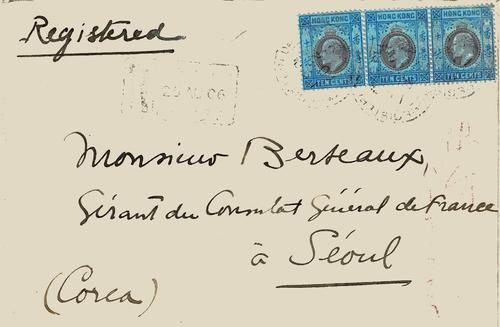 Registered
HONG KONG HONG KONG HONG KONG
TEN CENTS TEN CENTS TEN CENTS
Monsieur Berteaux,
Gérant du Consulat Général de France
à Séoul
(Corea)